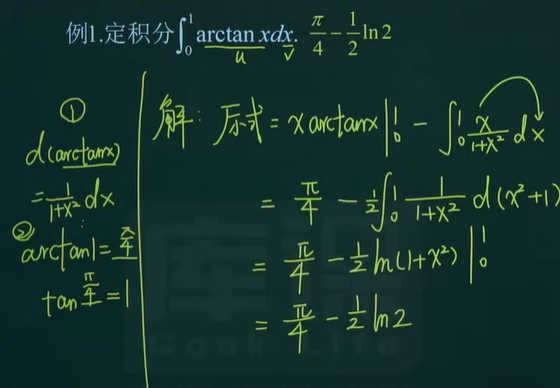 例1.定积分∫₀¹ arctan xdx. π/4 − 1/2 ln2
u v
①
d(arctanx)
= 1/(1+x²) dx
② arctan1 = π/4
tan π/4 = 1
解: 原式 = x arctanx |₀¹ − ∫₀¹ x/(1+x²) dx
= π/4 − 1/2 ∫₀¹ 1/(1+x²) d(x²+1)
= π/4 − 1/2 ln(1+x²) |₀¹
= π/4 − 1/2 ln2
库课
Cook Life